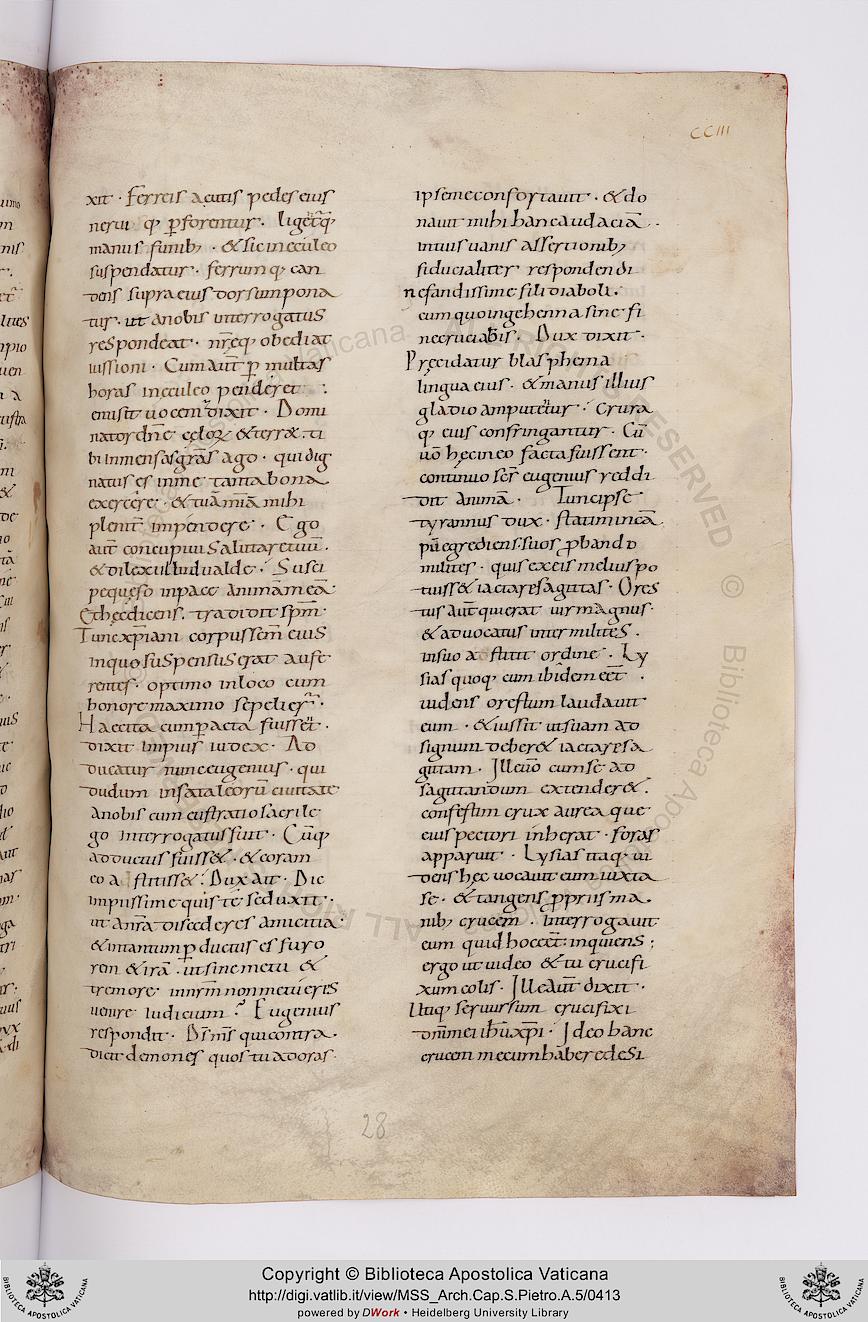 CCIII
xit · Ferreis acutis pedes eius
nerui q; ꝑforentur · ligetq;
manus funib; · & sic in eculeo
suspendatur · ferrum q; can
dens supra eius dorsum pona
tur · ut a nobis interrogatus
respondeat · nr̄eq; obediat
iussioni · Cum aut̄ ꝑ multas
horas in eculeo penderet ·
emisit uocem dixit · Domi
nator dn̄e celoꝝ & terrae · ti
bi inmensas grās ago · qui dig
natus es in me tanta bona
exercere · & tuā m̄iam mihi
plenit̄ impendere · Ego
aut̄ concupiui salutare tuū ·
& dilexi illud ualde · Susci
pe queso in pace animam meā ·
Et hec dicens · tradidit sp̄m ·
Tunc xp̄iani corpus sem̄ eius
in quo suspensus erat aufe
rentes · optimo in loco cum
honore maximo sepelier̄ ·
Haec ita cum ꝑacta fuisset ·
dixit impius iudex · Ad
ducatur nunc eugenius · qui
dudum in sataleorū ciuitate
a nobis cum eustratio sacrile
go interrogatus fuit · Cūq;
adductus fuiss& · & coram
eo adstitiss& · Dux ait · Dic
impiissime quis te seduxit ·
ut a nr̄a discederes amicitia ·
& in tantum ꝑductus es furo
rem & irā · ut sine metu &
tremore in nr̄m non metueris
uenire iudicium · Eugenius
respondit · Ds̄ m̄s qui contra
dicit demones quos tu adoras ·
ipse me confortauit · & do
nauit mihi hanc audaciā ·
in tuis uanis assertionib;
fiducialiter respondendi
nefandissime fili diaboli ·
cum quo in gehenna sine fi
ne cruciabis · Dux dixit ·
Precidatur blasphema
lingua eius · & manus illius
gladio amputetur · Crura
q; eius confringantur · Cū
uō hec in eo facta fuissent ·
continuo sēr eugenius reddi
dit animā · Tunc ipse
tyrannus dux · statim in cā
pū egrediens suos ꝓbando
milites · quis ex eis melius po
tuiss& iactare sagittas · Ores
tus aut̄ qui erat uir magnus ·
& aduocatus inter milites ·
in suo adstitit ordine · Ly
sias quoq; cum ibidem eēt ·
uidens orestum laudauit
eum · & iussit ut suam ad
signum deber& iactare sa
gittam · Ille uō cum se ad
sagittandum extender& ·
confestim crux aurea que
eius pectori inherat · foras
apparuit · Lysias itaq; ui
dens hec uocauit eum iuxta
se · & tangens ꝓpriis ma
nib; crucem · interrogauit
eum quid hoc eēt inquiens ;
ergo ut uideo & tu crucifi
xum colis · Ille aut̄ dixit ·
Utiq; seruus sum crucifixi
dn̄i mei ihū xp̄i · Ideo hanc
crucem mecum habere desi
28
Copyright © Biblioteca Apostolica Vaticana
http://digi.vatlib.it/view/MSS_Arch.Cap.S.Pietro.A.5/0413
powered by DWork • Heidelberg University Library